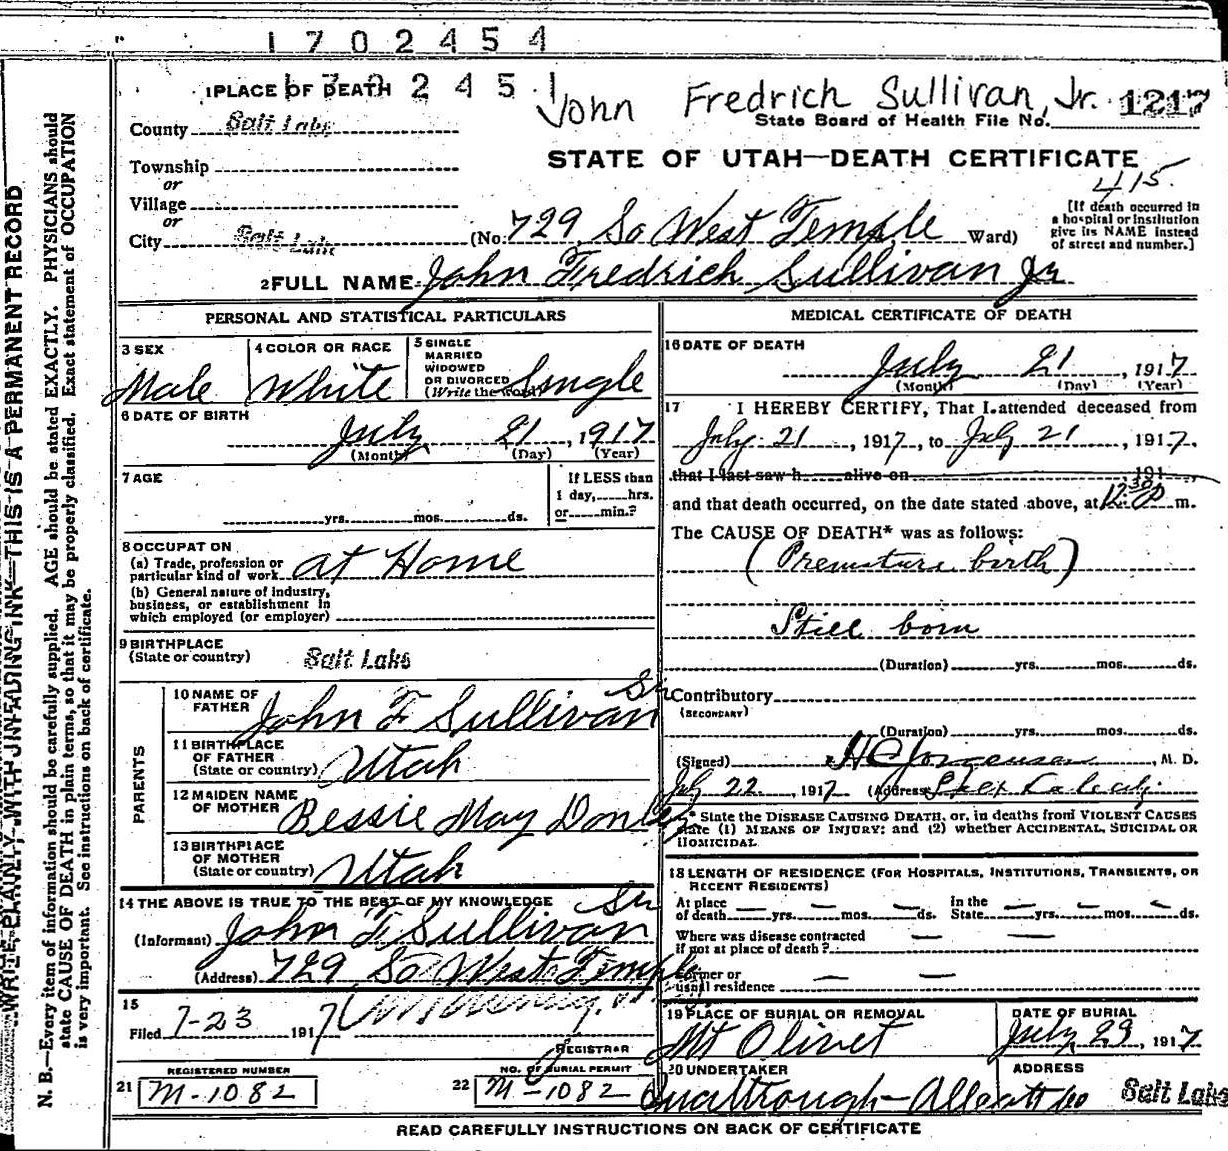 1702454
1702451
1 PLACE OF DEATH
John Fredrich Sullivan, Jr. 1217
State Board of Health File No.
County Salt Lake
STATE OF UTAH—DEATH CERTIFICATE
Township
415
or
Village
or
City Salt Lake (No. 729 So West Temple Ward)
[If death occurred in
a hospital or institution
give its NAME instead
of street and number.]
2 FULL NAME John Fredrich Sullivan Jr
PERSONAL AND STATISTICAL PARTICULARS
3 SEX
Male
4 COLOR OR RACE
White
5 SINGLE
MARRIED
WIDOWED
OR DIVORCED
(Write the word) Single
6 DATE OF BIRTH
July 21, 1917
(Month) (Day) (Year)
7 AGE
yrs. mos. ds.
If LESS than
1 day, hrs.
or min.?
8 OCCUPATON
(a) Trade, profession or
particular kind of work at Home
(b) General nature of industry,
business, or establishment in
which employed (or employer)
9 BIRTHPLACE
(State or country) Salt Lake
PARENTS
10 NAME OF
FATHER John F Sullivan Sr
11 BIRTHPLACE
OF FATHER
(State or country) Utah
12 MAIDEN NAME
OF MOTHER Bessie May Donley
13 BIRTHPLACE
OF MOTHER
(State or country) Utah
14 THE ABOVE IS TRUE TO THE BEST OF MY KNOWLEDGE
(Informant) John F Sullivan Sr
(Address) 729 So West Temple
15
Filed 7-23 1917
REGISTRAR
REGISTERED NUMBER
21 M-1082
NO. OF BURIAL PERMIT
22 M-1082
MEDICAL CERTIFICATE OF DEATH
16 DATE OF DEATH
July 21, 1917
(Month) (Day) (Year)
17 I HEREBY CERTIFY, That I attended deceased from
July 21, 1917, to July 21, 1917.
that I last saw h alive on 191
and that death occurred, on the date stated above, at 12:30 P m.
The CAUSE OF DEATH* was as follows:
(Premature birth)
Still born
(Duration) yrs. mos. ds.
Contributory
(SECONDARY)
(Duration) yrs. mos. ds.
(Signed) H C Jorgensen, M. D.
July 22, 1917 (Address)
* State the DISEASE CAUSING DEATH, or, in deaths from VIOLENT CAUSES
state (1) MEANS OF INJURY; and (2) whether ACCIDENTAL, SUICIDAL OR
HOMICIDAL
18 LENGTH OF RESIDENCE (FOR HOSPITALS, INSTITUTIONS, TRANSIENTS, OR
RECENT RESIDENTS)
At place
of death — yrs. — mos. — ds.
In the
State — yrs. — mos. — ds.
Where was disease contracted
if not at place of death? — —
Former or
usual residence — —
19 PLACE OF BURIAL OR REMOVAL
Mt Olivet
DATE OF BURIAL
July 23, 1917
20 UNDERTAKER
Qualtrough-Allcott Co
ADDRESS
Salt Lake
READ CAREFULLY INSTRUCTIONS ON BACK OF CERTIFICATE
WRITE PLAINLY, WITH UNFADING INK—THIS IS A PERMANENT RECORD
N. B.—Every item of information should be carefully supplied. AGE should be stated EXACTLY. PHYSICIANS should
state CAUSE OF DEATH in plain terms, so that it may be properly classified. Exact statement of OCCUPATION
is very important. See instructions on back of certificate.